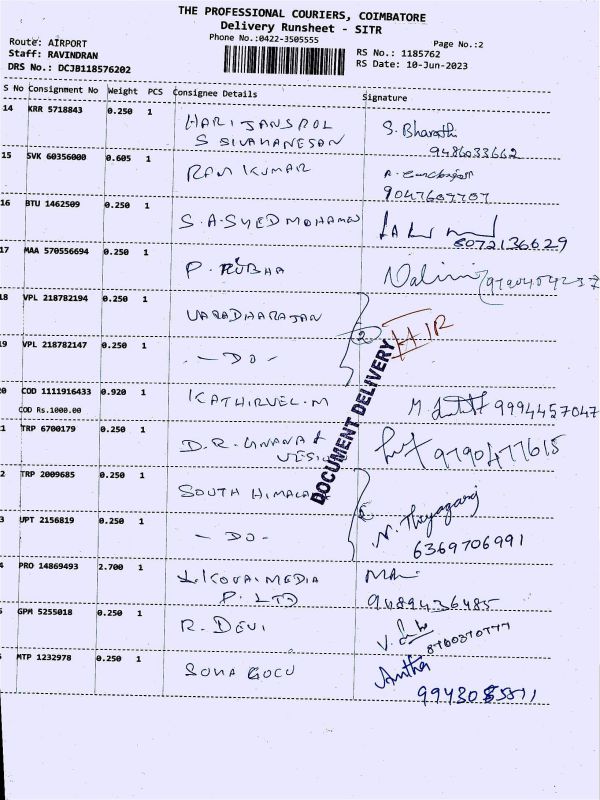 THE PROFESSIONAL COURIERS, COIMBATORE
Delivery Runsheet - SITR
Phone No.:0422-3505555
Page No.:2
Route: AIRPORT
Staff: RAVINDRAN
DRS No.: DCJB118576202
RS No.: 1185762
RS Date: 10-Jun-2023
S No Consignment No Weight PCS Consignee Details Signature
14 KRR 5718843 0.250 1 HARIJANSROL S. Bharath
S SIVAHANESAN 9486033662
15 SVK 60356000 0.605 1 RAM KUMAR
9047609707
16 BTU 1462509 0.250 1 S.A.SYED MOHAMED
8072136629
17 MAA 570556694 0.250 1 P. RUBHA Nalini
18 VPL 218782194 0.250 1 VARADHARAJAN
2
19 VPL 218782147 0.250 1 - DO -
DOCUMENT DELIVERY
0 COD 1111916433 0.920 1 KATHIRVEL.M M. 9994457047
COD Rs.1000.00
1 TRP 6700179 0.250 1 D.R. 9790477615
2 TRP 2009685 0.250 1 SOUTH N. Thyagaraj
3 UPT 2156819 0.250 1 - DO - 6369706991
4 PRO 14869493 2.700 1 MEDIA
P. LTD 9489436485
GPM 5255018 0.250 1 R. DEVI V.
MTP 1232978 0.250 1 SONA GOCU Antha